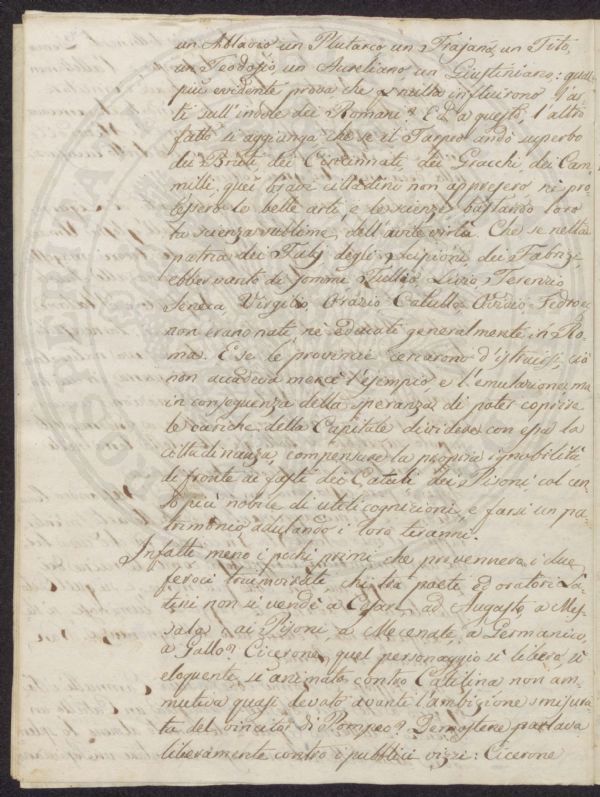 un Ablavio un Plutarco un Trajano, un Tito,
un Teodosio, un Aureliano un Giustiniano: qual
più evidente prova che nulla influirono l'ar-
ti sull'indole dei Romani? E a questo, l'altro
fatto si aggiunga che se il Tarpeo andò superbo
dei Bruti dei Cincinnati, dei Gracchi, dei Cam-
milli, quei bravi cittadini non appresero, nè pro-
fessero le belle arti, e le scienze bastando loro
la scienza sublime, dell'avite virtù. Che se nella
patria dei Fabj degli Scipioni dei Fabrizi
ebber vanto di sommi Tullio, Livio, Terenzio,
Seneca Virgilio, Orazio Catullo, Ovidio Fedro ei
non erano nati nè educati generalmente in Ro-
ma. E se le provincie cercarono d'istruirsi, ciò
non accadeva mercè l'esempio e l'emulazione ma
in conseguenza della speranza di poter coprire
le cariche della Capitale dividere con essa la
cittadinanza, compensare la propria ignobiltà
di fronte ai fasti dei Catuli dei Pisoni, col cen-
so più nobile di utili cognizioni, e farsi un pa-
trimonio adulando i loro tiranni.
Infatti meno i pochi primi che prevennero i due
feroci triumvirati, chi tra' poeti ed oratori La-
tini non si vendè a Cesare, ad Augusto, a Mes-
sala, ai Pisoni, a Mecenate, a Germanico,
a Gallo? Cicerone, quel personaggio sì libero, sì
eloquente, sì animato contro Catilina non am-
mutiva quasi devoto avanti l'ambizione smisura-
ta del vincitor di Pompeo? Demostene parlava
liberamente contro i pubblici vizzi: Cicerone